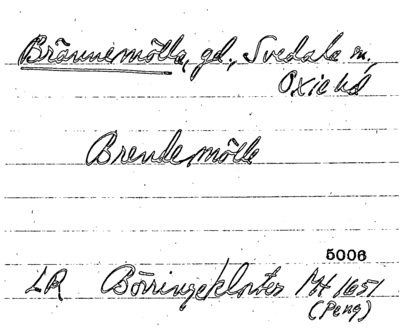 Brännemölla, gd., Svedala sn,
Oxie hd
Brendemölle
5006
LR Börringekloster MH 1651
(Peng)